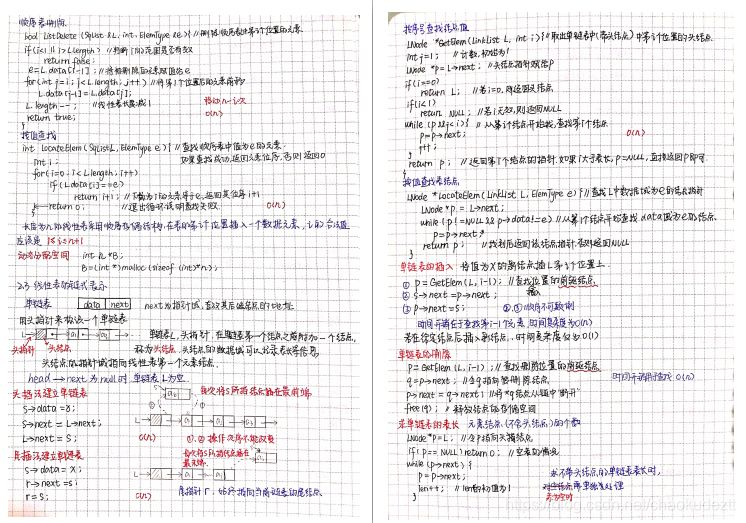 顺序表删除
bool ListDelete(SqList &L, int i, ElemType &e){ //删除顺序表中第i个位置的元素
if(i<1 || i>L.length) //判断i的范围是否有效
return false;
e=L.data[i-1]; //将被删除的元素赋值给e
for(int j=i; j<L.length; j++) //将第i个位置后的元素前移
L.data[j-1]=L.data[j];
L.length--; //线性表长度减1
移动n-i次
return true;
O(n)
}
按值查找
int LocateElem(SqList L, ElemType e){ //查找顺序表中值为e的元素
int i; 如果查找成功,返回元素位序,否则返回0
for(i=0; i<L.length; i++)
if(L.data[i]==e)
return i+1; //下标为i的元素等于e,返回其位序i+1
return 0; //退出循环,说明查找失败 O(n)
}
长度为n的线性表采用顺序存储结构,在表的第i个位置插入一个数据元素,i的合法值
应该是 1≤i≤n+1
动态分配空间 int n, *B;
B=(int*)malloc(sizeof(int)*n);
2.3 线性表的链式表示
单链表 data next next为指针域,存放其后继结点的地址
用头指针来标识一个单链表
L→ a₁ a₂ 单链表L,头指针,在单链表第一个结点之前附加一个结点,
头指针 头结点 称为头结点.头结点的数据域可以记录表长等信息
头结点的指针域指向线性表第一个元素结点
head→next为null时 单链表L为空.
头插法建立单链表 每次将S所指结点插在最前端
s→data=x;
s→next=L→next;
L→next=s; O(n) ①,②操作次序不能改变
尾插法建立单链表 每次将S所指结点插在最末端
s→data=x;
r→next=s;
r=s; O(n) 尾指针r,始终指向当前链表的尾结点.
按序号查找结点值
LNode *GetElem(LinkList L, int i){ //取出单链表中(带头结点)中第i个位置的头结点.
int j=1; //计数,初始为1
LNode *p=L→next; //头结点指针赋给p
if(i==0)
return L; //若i=0,则返回头结点
if(i<1)
return NULL; //若i无效,则返回NULL
while(p&&j<i){ //从第1个结点开始找,查找第i个结点
p=p→next; O(n)
j++;
}
return p; //返回第i个结点的指针,如果i大于表长,p=NULL,直接返回p即可.
}
按值查找表结点
LNode *LocateElem(LinkList L, ElemType e){ //查找L中数据域为e的结点指针
LNode *p=L→next;
while(p!=NULL && p→data!=e) //从第1个结点开始查找data域为e的结点.
p=p→next;
return p; //找到后返回该结点指针,否则返回NULL
}
单链表的插入 将值为X的新结点插L第i个位置上.
① p=GetElem(L,i-1); //查找位置的前驱结点
② s→next=p→next;
③ p→next=s; ②,③顺序不可颠倒
时间开销在于查找第i-1个元素,时间复杂度为O(n)
若在给定结点后插入新结点,时间复杂度仅为O(1)
单链表的删除
p=GetElem(L,i-1); //查找删除位置的前驱结点
q=p→next; //令q指向被删除结点 时间开销用于查找 O(n)
p→next=q→next; //将*q结点从链中"断开"
free(q); //释放结点的存储空间
求单链表的表长 元素结点(不含头结点)的个数
LNode *p=L; //令p指向头结点
if(p==NULL) return 0; //空表的情况
while(p→next){
p=p→next; 求不带头结点的单链表表长时,
len++; //len的初值为1 对空表需单独处理
}